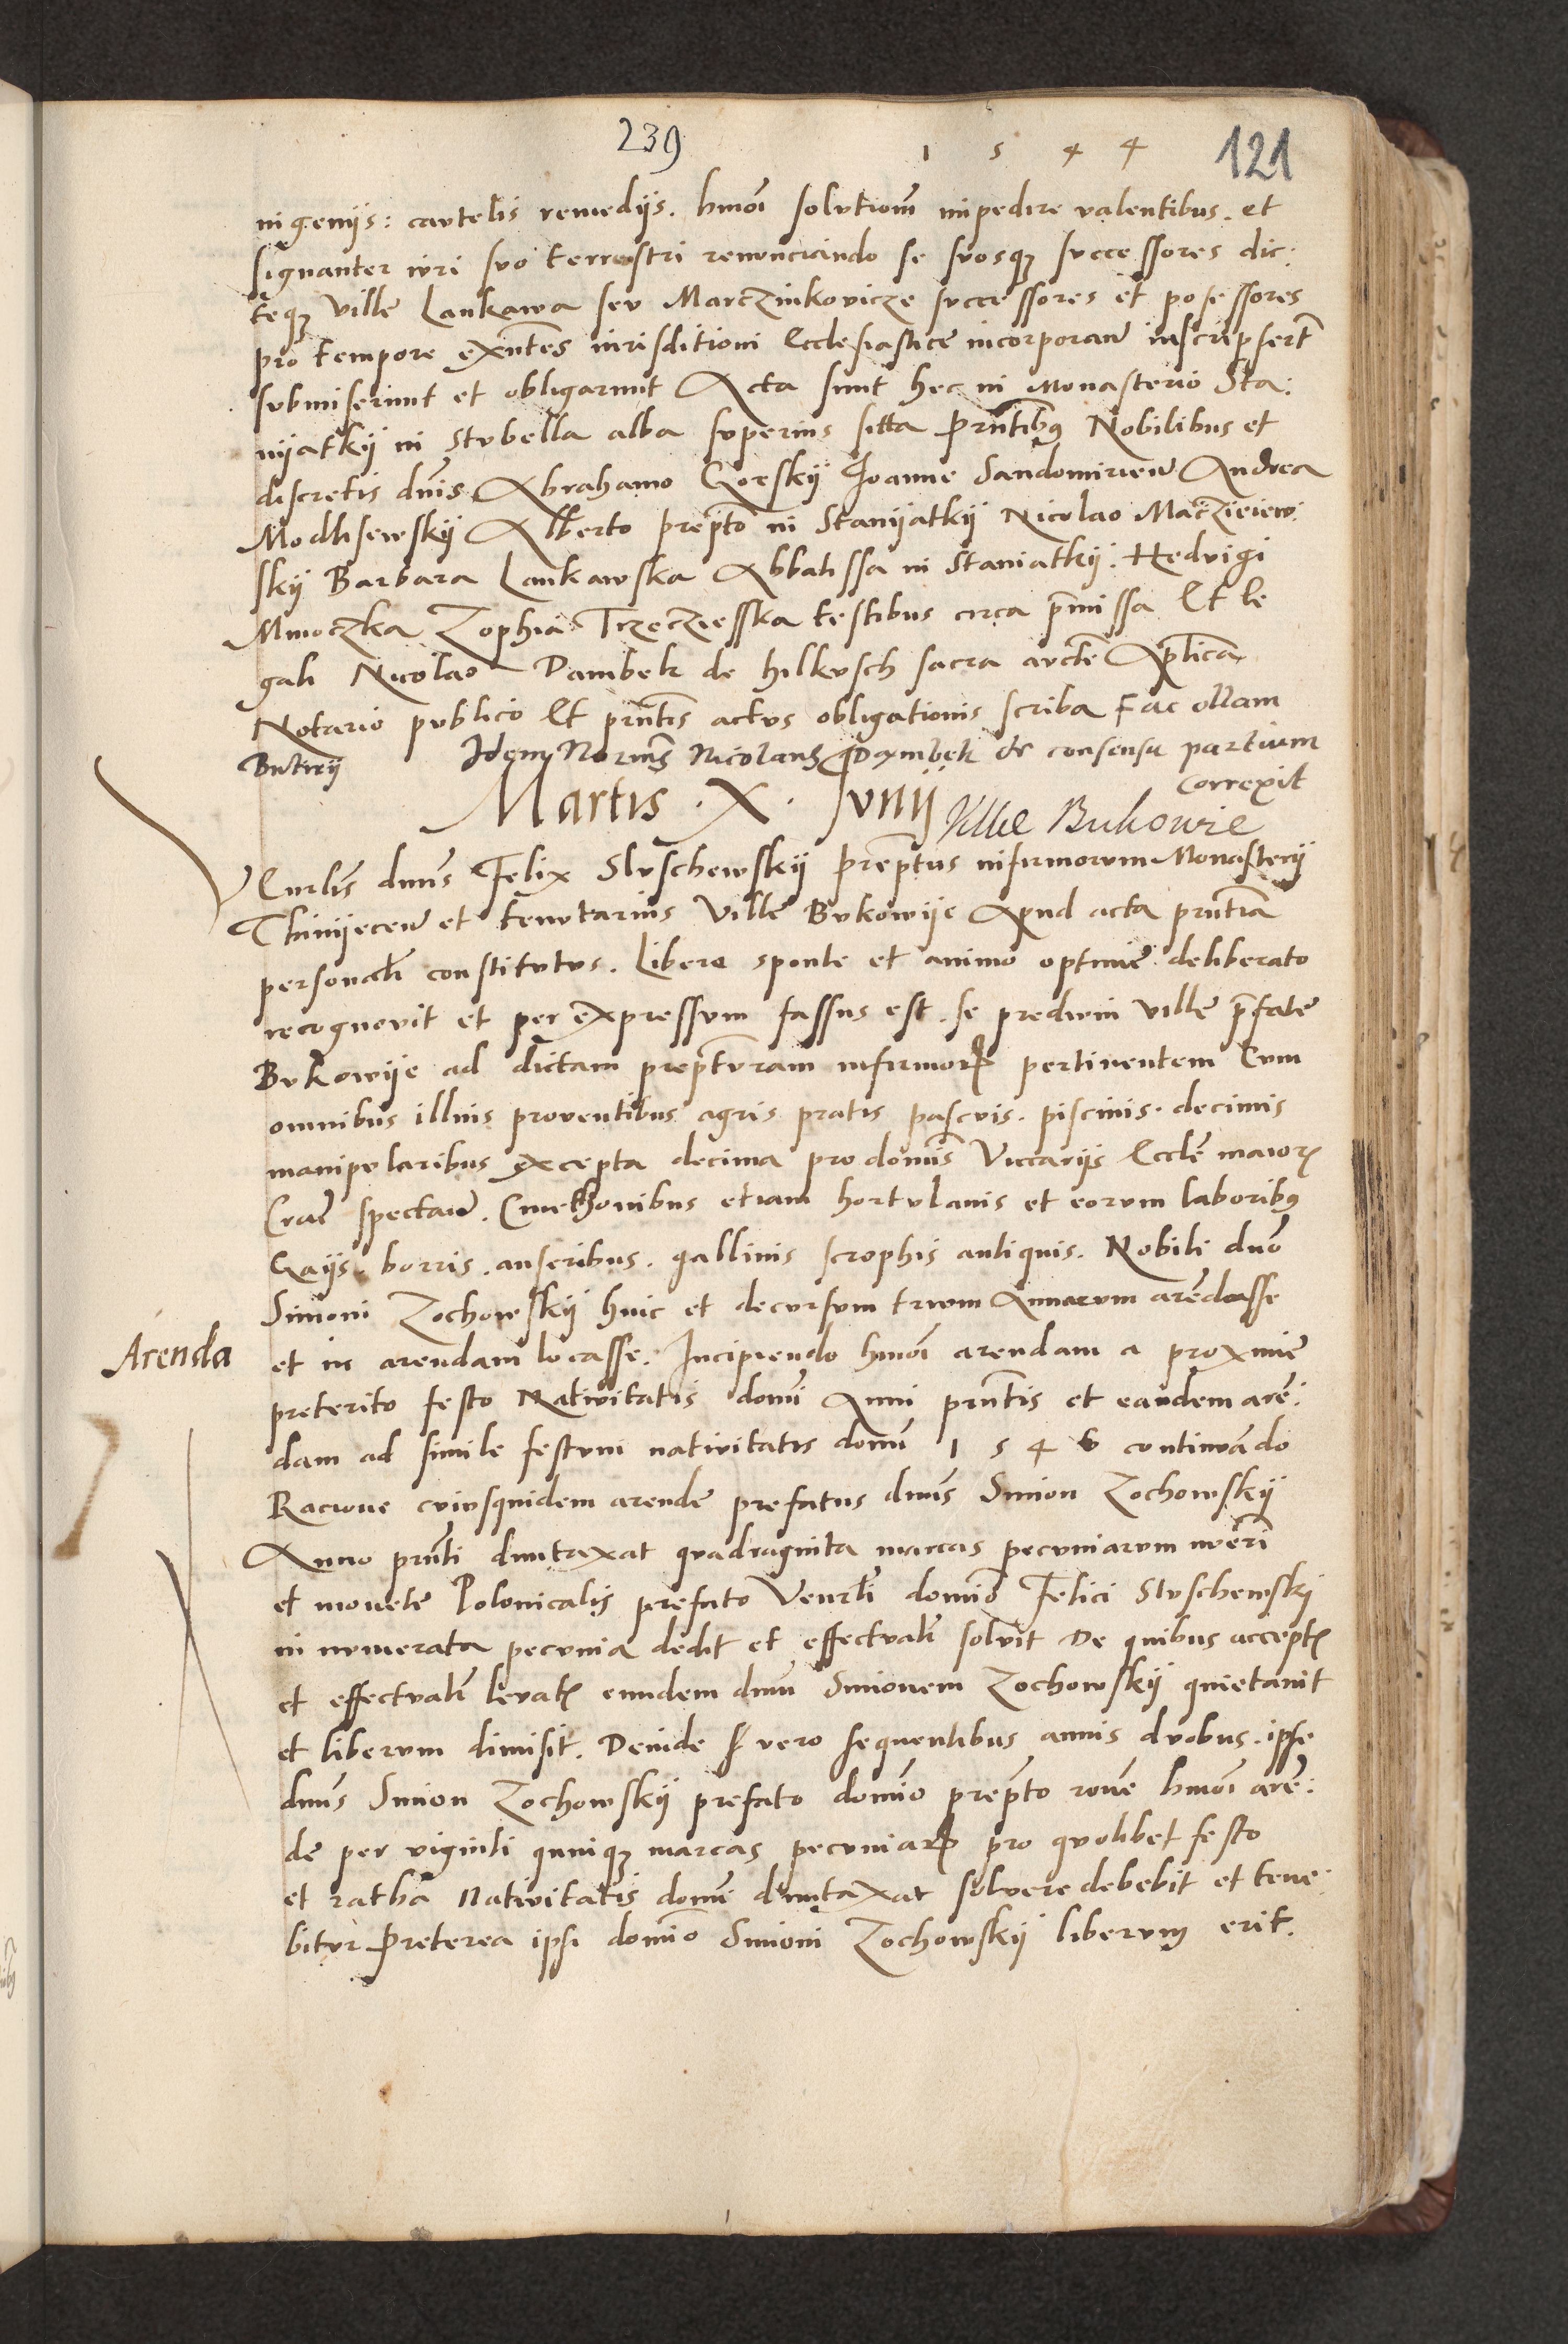 239
1 5 4 4
121
ingenijs: cautelis remedijs. hmoi solutiom impedire valentibus. et
signanter iuri suo terrestri renunciando se suosq; successores dic:
teq; ville Lankawa seu Martzinkovicze successores et posessores
pro tempore exntes iurisditioni Ecclesiastice incorporan inscripsert
submiserunt et obligarunt Acta sunt hec in Monasterio Sta:
nijatkij in Stubella alba superius sitta Prntibus Nobilibus et
discretis dnis Abrahamo Gorskij Joanne Sandomirien Andrea
Modlisewskij Alberto preptto in Stanijatkij Nicolao Maczieiew:
skij Barbara Lankawska Abbatissa in Staniatkij. Hedvigi
Mnoczka Zophia Trzeczieska testibus circa pmissa Et le
gali Nicolao Dambek de hilkusch sacra aucte Aplica
Notario publico Et prntis actus obligationis scriba Fac ollam
Butirij
Idem Norius Nicolaus Dambek de consensu partium
correxit
Martis . X . Junij
Ville Bukowie
Venrlis dnus Felix Sluschewskij preptus infirmorum Monasterij
Thinijecen et tenutarius Ville Bukowije Apud acta prntia
personalr constitutus. Libere sponte et animo optime deliberato
recognovit et per expressum fassus est. se predium ville pfate
Bukowije ad dictam prepturam infirmor pertinentem Cum
omnibus illius proventibus agris pratis pascuis. piscinis. decimis
manipularibus excepta decima pro domis Viccarijs Eccle maior
Crac spectan. Cmethonibus etiam hortulanis et eorum laboribus
Gaijs. borris. anseribus. gallinis scrophis antiquis. Nobili dno
Simoni Zochowskij huic et decursum trium Annorum arendasse
Arenda
et in arendam locasse. Incipiendo hmoi arendam a proxime
preterito festo Nativitatis domi Anni prntis et eandem aren:
dam ad simile festum nativitatis domi 1 5 4 6 continuando
Racione cuiusquidem arende prefatus dnus Simon Zochowskij
Anno prnti duntaxat quadraginta marcas pecuniarum nueri
et monete Polonicalis prefato Venrli domio Felici Sluschewskij
in numerata pecunia dedit et effectualr solvit De quibus accept
et effectualr levat eundem dnum Simonem Zochowskij quietavit
et liberum dimisit. Deinde vero sequentibus annis duobus. ipse
dnus Simon Zochowskij prefato domio prepto rone hmoi aren:
de per viginti quinq; marcas pecuniar pro quolibet festo
et ratha Nativitatis domi duntaxat solvere debebit et tene:
bitur Preterea ipsi domio Simoni Zochowskij liberum erit.